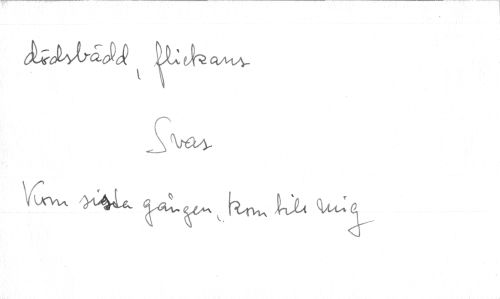 dödsbädd, flickans
Svas
Kom sista gången, kom till mig